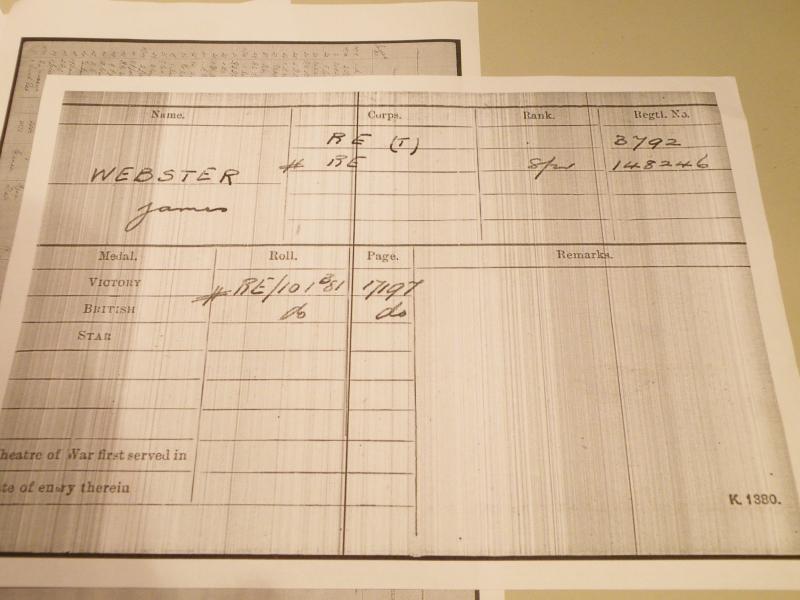 Name. Corps. Rank. Regtl. No.
R E (T) 3792
WEBSTER # RE Spr 148246
James
Medal. Roll. Page. Remarks.
VICTORY # RE/101 B81 17197
BRITISH do do
STAR
heatre of War first served in
te of entry therein
K. 1380.